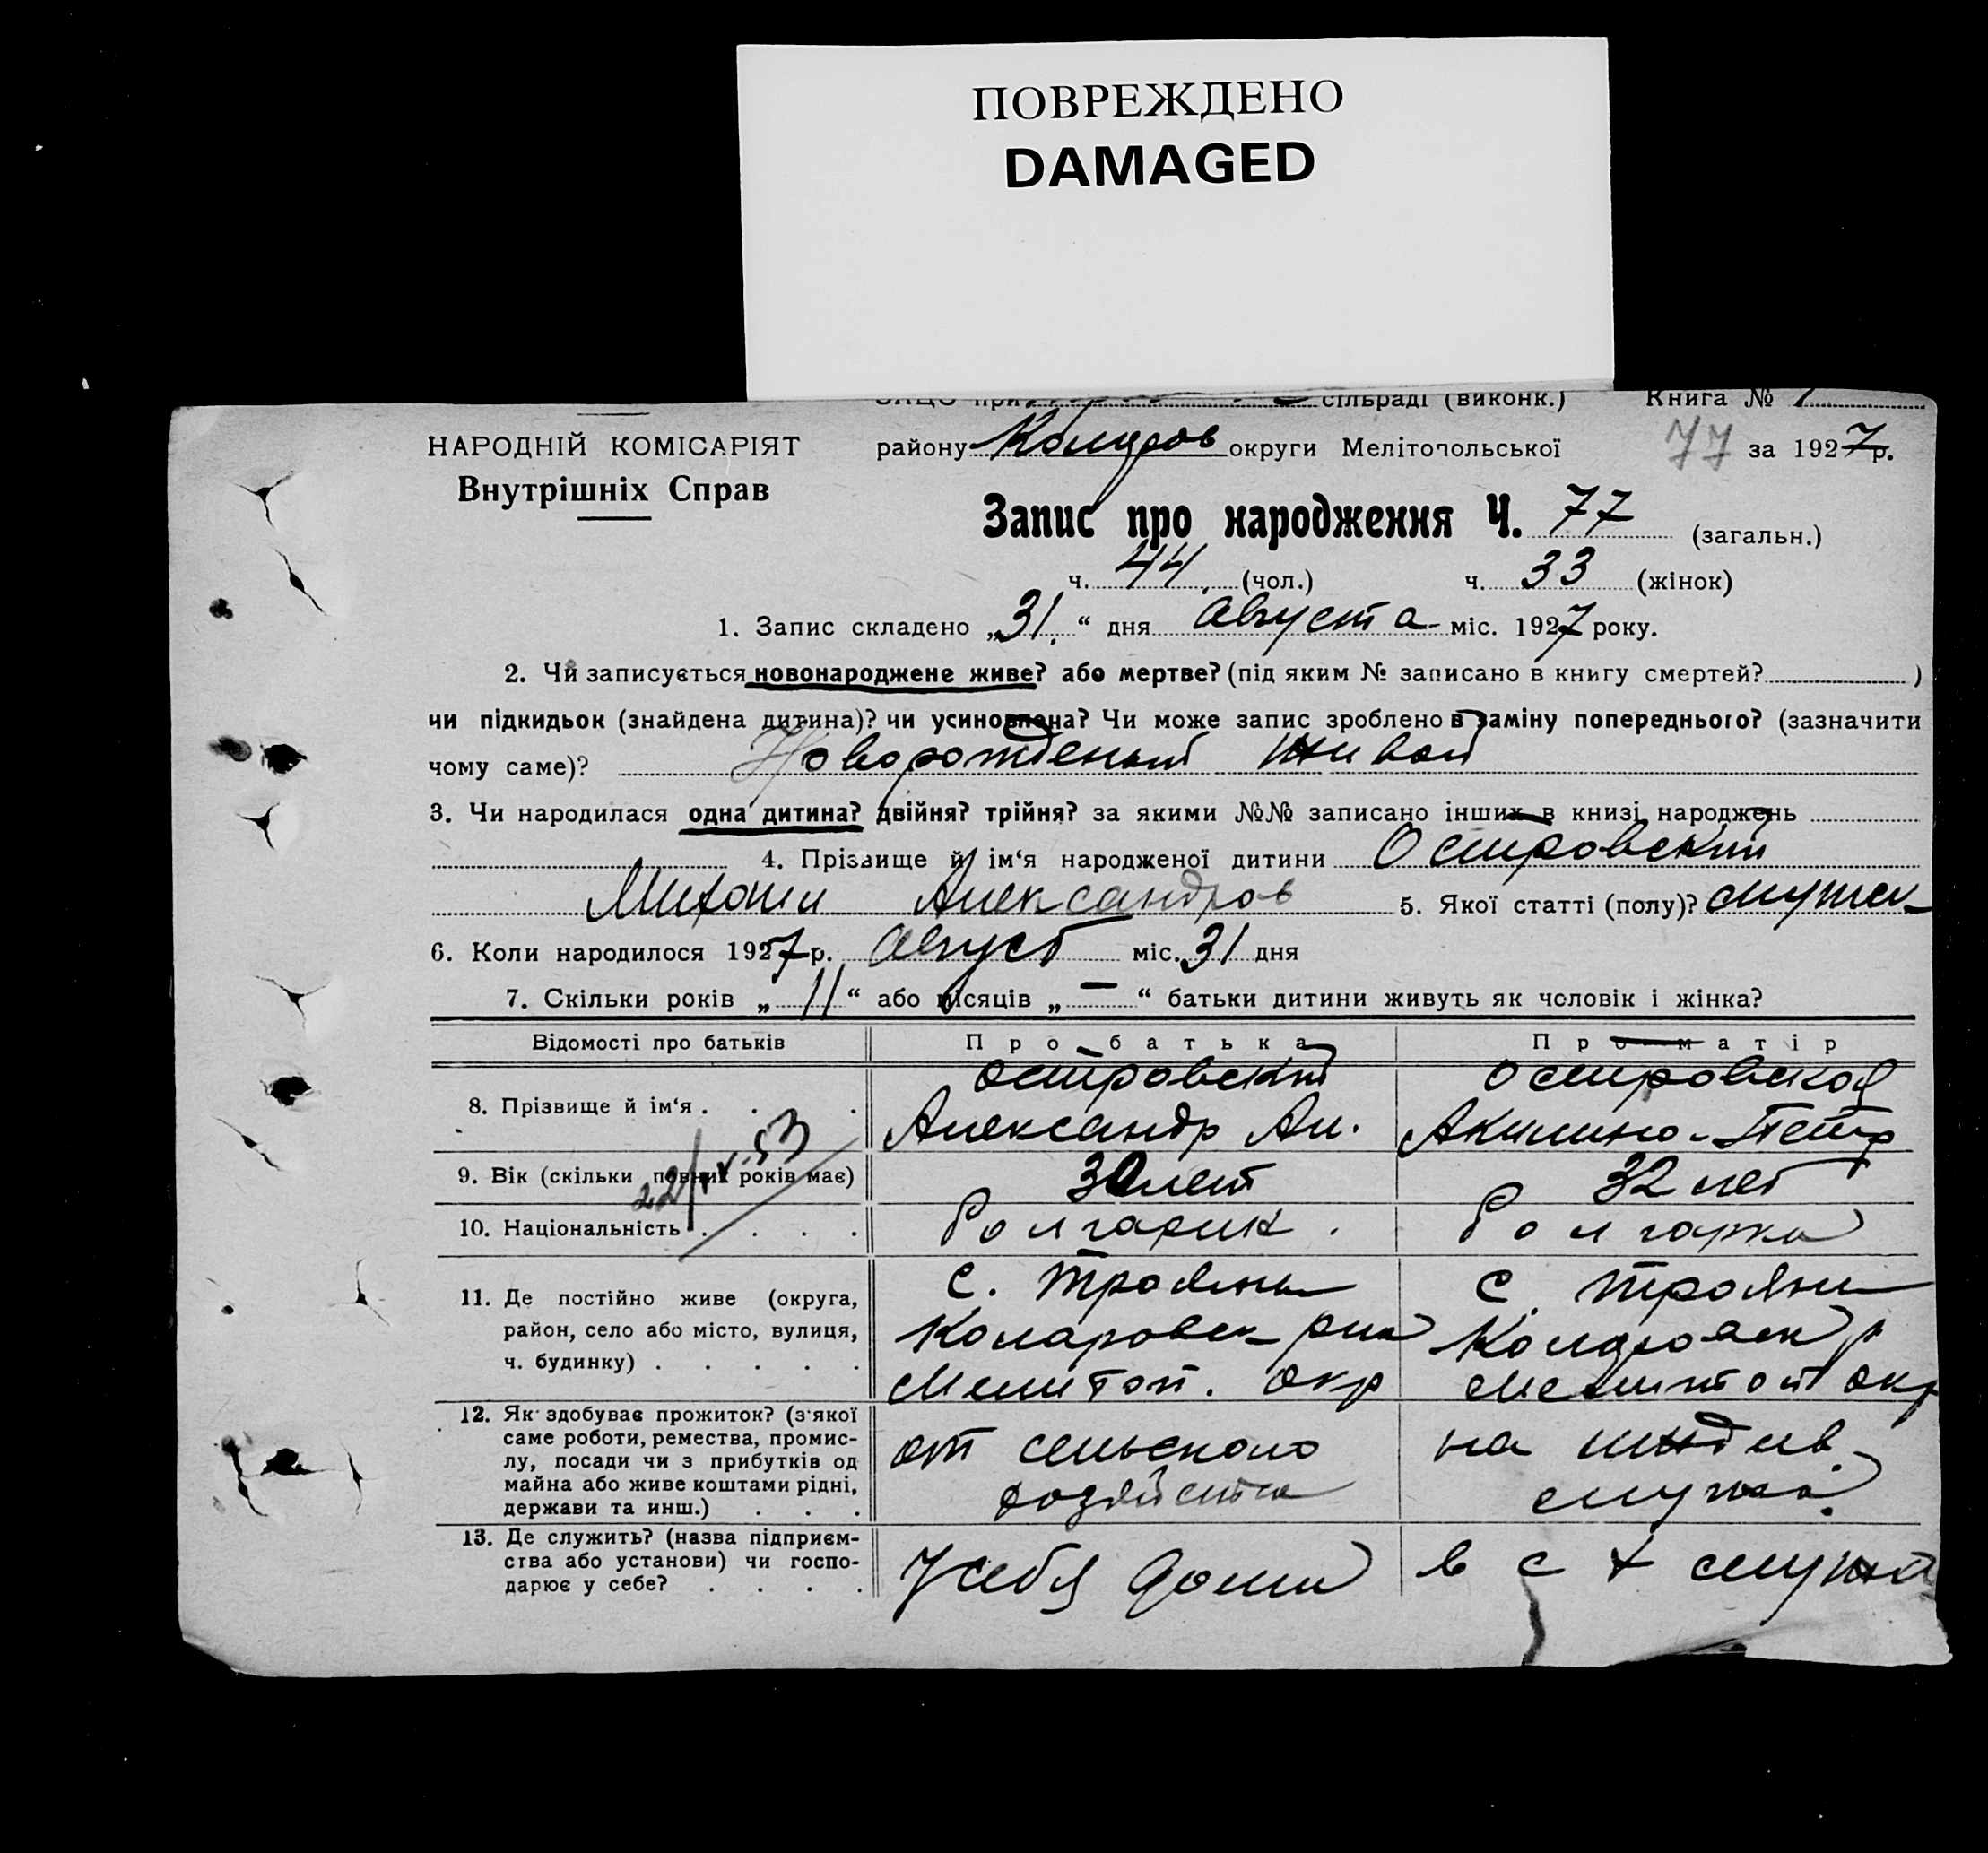 ПОВРЕЖДЕНО
DAMAGED
сільраді (виконк.) Книга № 1
НАРОДНІЙ КОМІСАРІЯТ
Внутрішніх Справ
району Коларов округи Мелітопольської 77 за 1927 р.
Запис про народження Ч. 77 (загальн.)
ч. 44 (чол.) ч. 33 (жінок)
1. Запис складено „31.“ дня Августа міс. 1927 року.
2. Чи записується новонароджене живе? або мертве? (під яким № записано в книгу смертей? )
чи підкидьок (знайдена дитина)? чи усиновлена? Чи може запис зроблено в заміну попереднього? (зазначити
чому саме)? Новорожденый живой
3. Чи народилася одна дитина? двійня? трійня? за якими №№ записано інших в книзі народжень
4. Прізвище й ім‘я народженої дитини Островский
Михаил Александров 5. Якої статті (полу)?
6. Коли народилося 1927 р. Август міс. 31 дня
7. Скільки років „11“ або місяців „—“ батьки дитини живуть як чоловік і жінка?
Відомості про батьків Про батька Про матір
8. Прізвище й ім‘я . . . Островский Островская
Александр Ан. Акилина Петр
9. Вік (скільки повних років має) 30 лет 32 лет
10. Національність . . . . Болгарин. Болгарка
11. Де постійно живе (округа,
район, село або місто, вулиця,
ч. будинку) . . . . .
с. Трояны
Коларовск рна
Мелитоп. окр
с. Трояны
Коларовск р
Мелитоп окр
12. Як здобуває прожиток? (з якої
саме роботи, ремества, промис-
лу, посади чи з прибутків од
майна або живе коштами рідні,
держави та инш.) . . .
от сельского
хозяйства
на иждив.
мужа
13. Де служить? (назва підприєм-
ства або установи) чи госпо-
дарює у себе? . . . .
У себя дома
в с х мужа